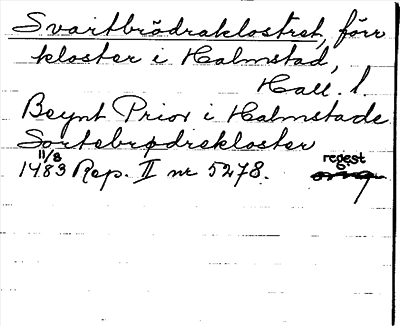 Svartbrödraklostret, förr
kloster i Halmstad,
Hall. l.
Beynt Prior i Halmstade
Sortebrødrekloster
11/8 regest
1483 Rep. II nr 5278. orig